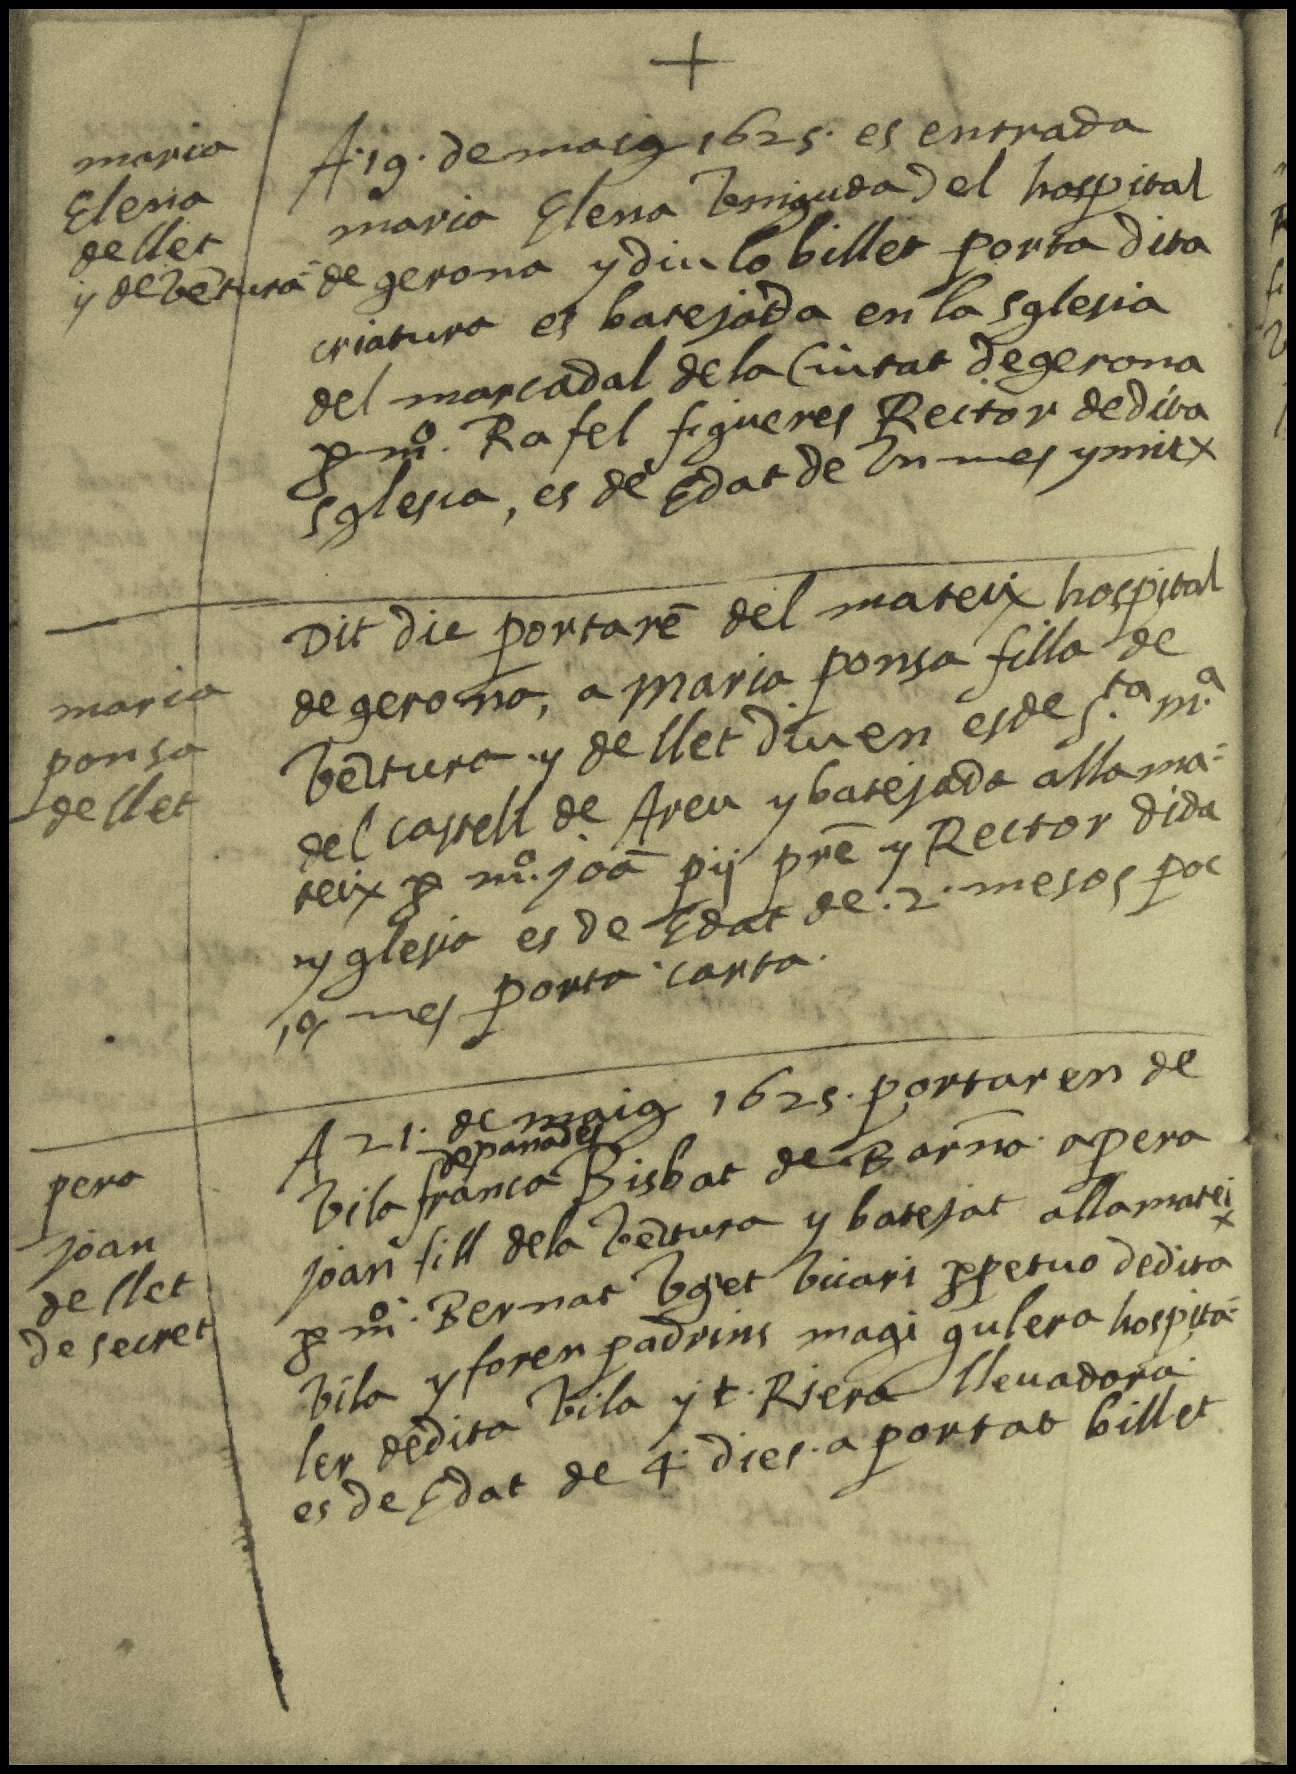 +
maria
Elena
de llet
y de vētura
A 19. de maig 1625. es entrada
maria Elena venguda del hospital
de gerona y diu lo billet porta dita
criatura es batejada en la sglesia
del marcadal de la Ciutat de gerona
p mº. Rafel figueres Rector de dita
sglesia, es de Edat de Vn mes y mitx
maria
ponsa
de llet
Dit die portarē del mateix hospital
de gerona, a maria ponsa filla de
vētura y de llet diuen es de S.ta m.a
del castell de Areu y batejada alla ma=
teix p mº. joā pij prē y Rector dida
yglesia es de Edat de .2. mesos poc
mes porta carta.
pera
joan
de llet
de secret
A 21. de maig 1625. portaren de
de panades
vila franca Bisbat de Barn̄a. a pera
joan fill de la vētura y batejat alla matei
x
p mº. Bernat Vget vicari ppetuo de dita
vila y foren padrins magi gulera hospita=
ler de dita vila y t. Riera lleuadora
es de Edat de 4. dies. a portat billet